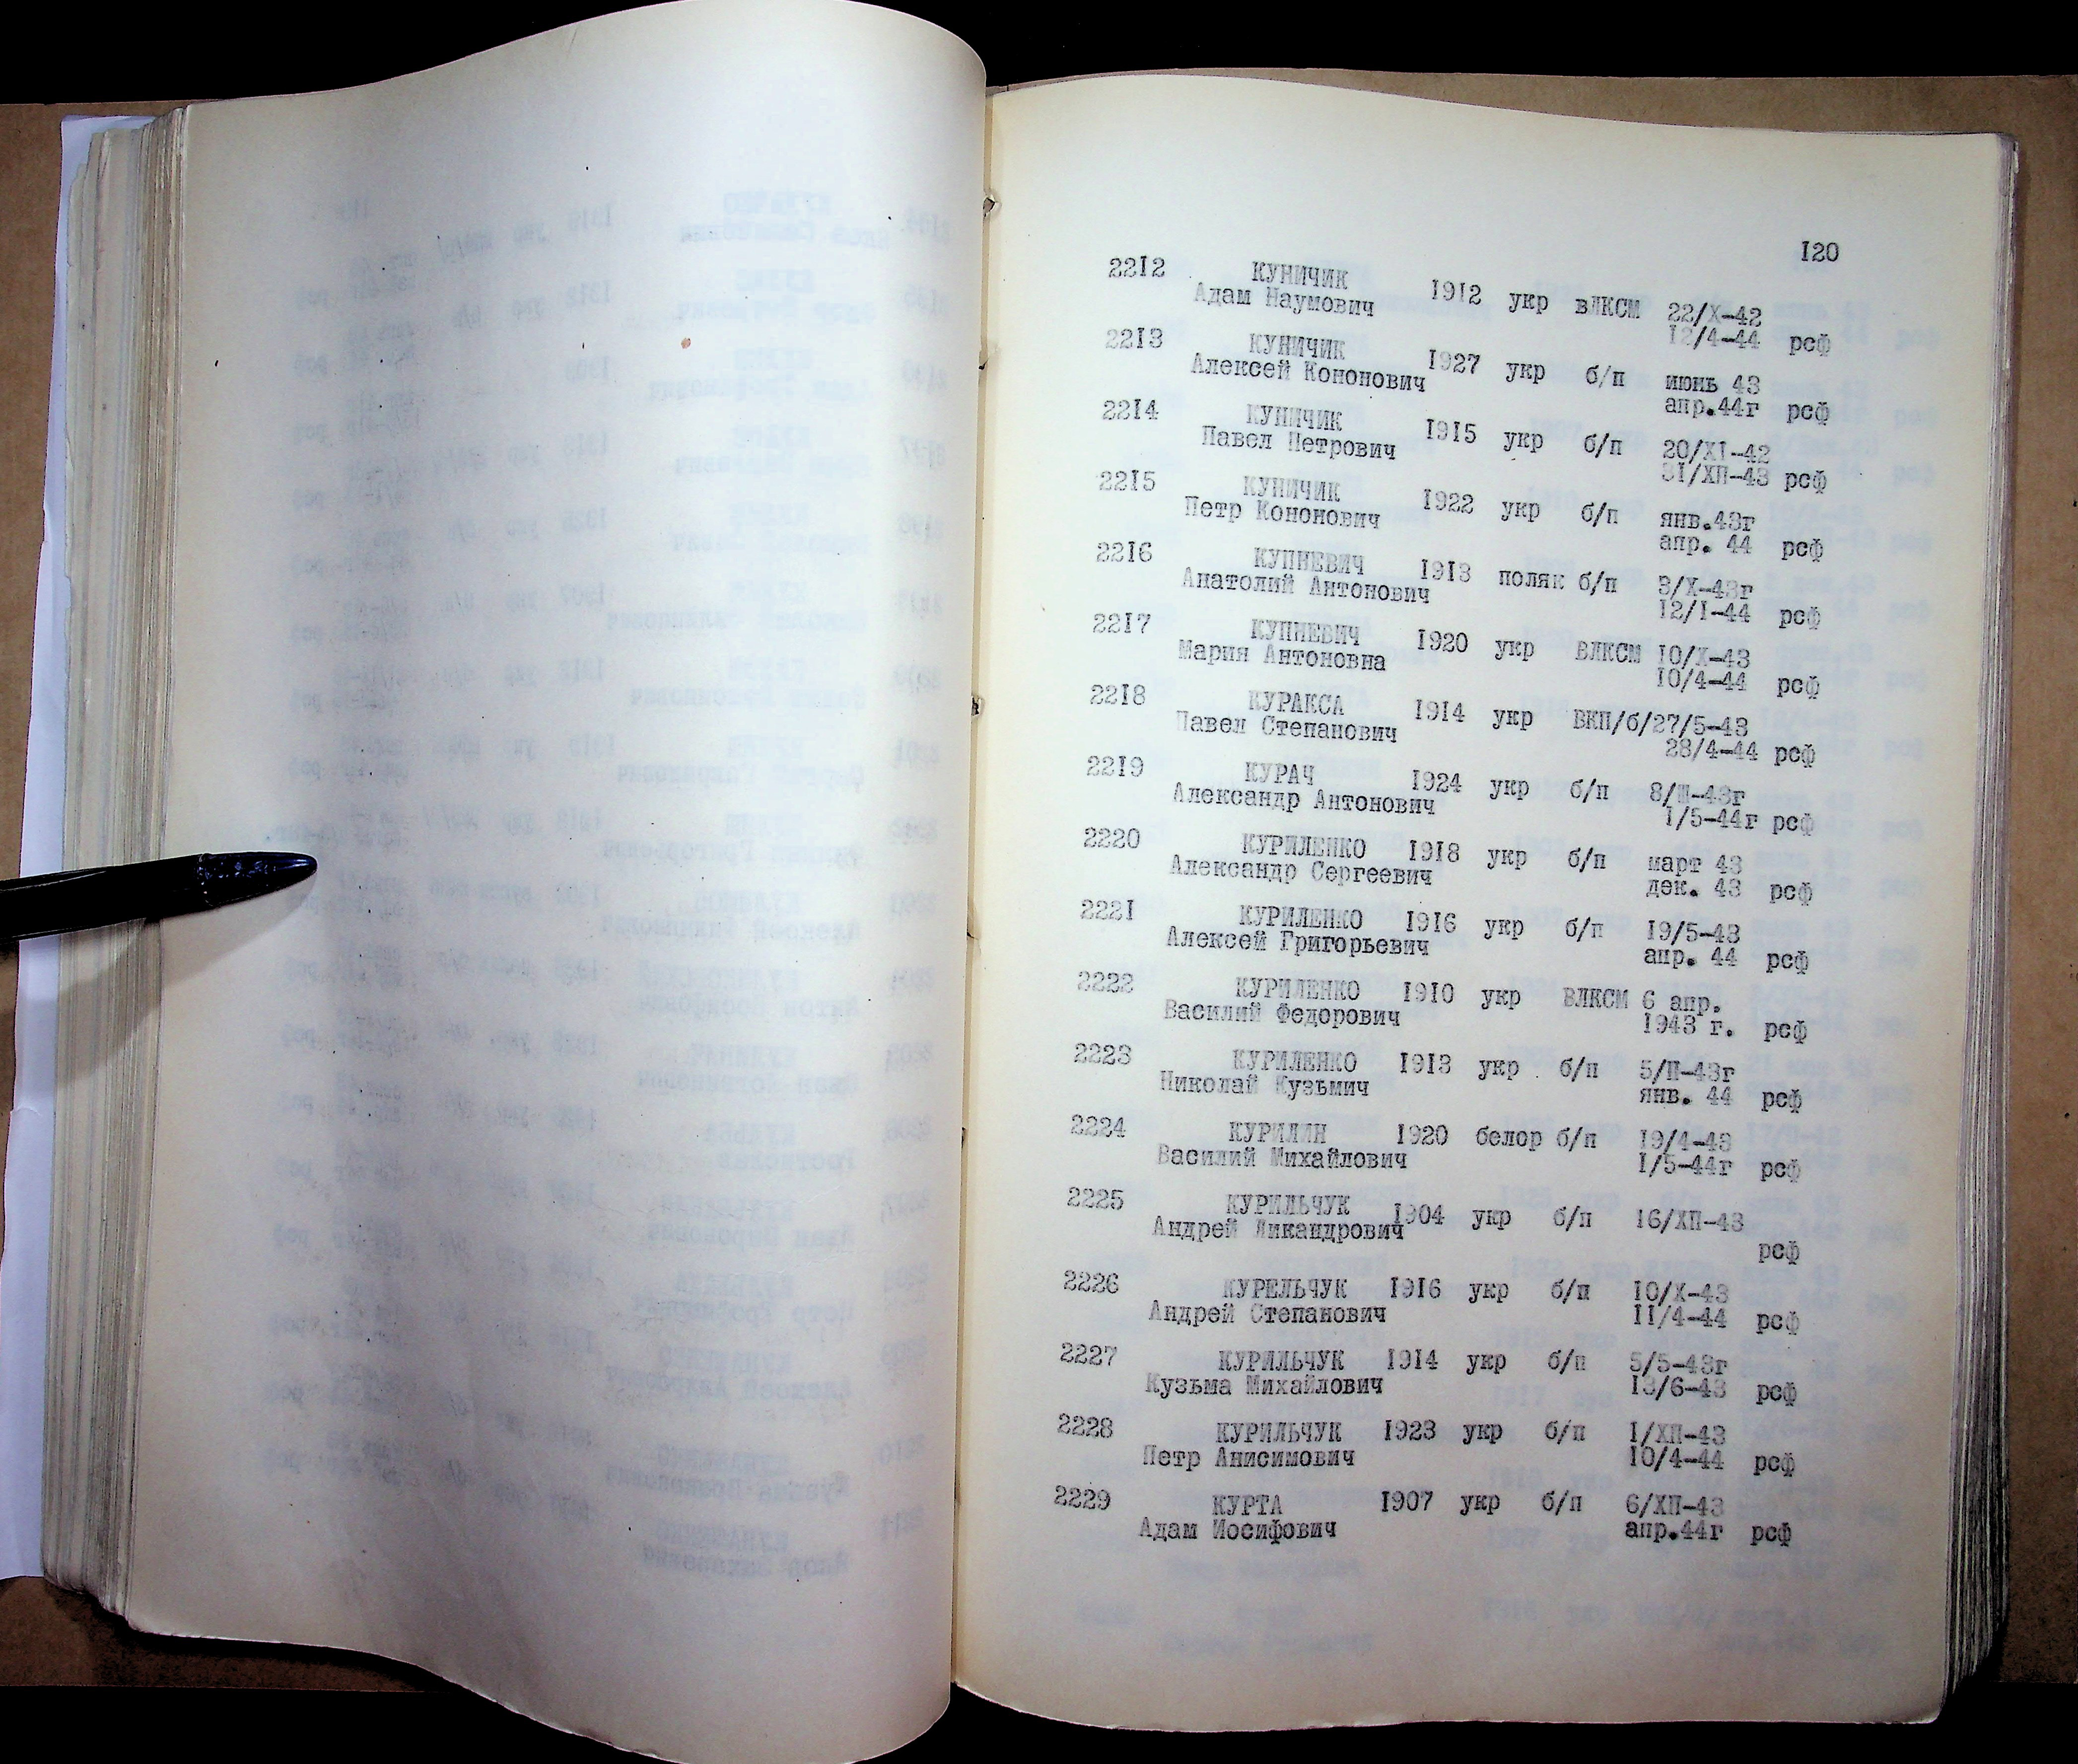 120
2212 КУНИЧИК 1912 укр вЛКСМ 22/X-42
Адам Наумович 12/4-44 рсф
2213 КУНИЧИК 1927 укр б/п июнь 43
Алексей Кононович апр.44г рсф
2214 КУНИЧИК 1915 укр б/п 20/XI-42
Павел Петрович 31/ХП-43 рсф
2215 КУНИЧИК 1922 укр б/п янв.43г
Петр Кононович апр. 44 рсф
2216 КУПНЕВИЧ 1913 поляк б/п 3/X-43г
Анатолий Антонович 12/I-44 рсф
2217 КУПНЕВИЧ 1920 укр ВЛКСМ 10/X-43
Мария Антоновна 10/4-44 рсф
2218 КУРАКСА 1914 укр ВКП/б/27/5-43
Павел Степанович 28/4-44 рсф
2219 КУРАЧ 1924 укр б/п 8/Ш-43г
Александр Антонович 1/5-44г рсф
2220 КУРИЛЕНКО 1918 укр б/п март 43
Александр Сергеевич дек. 43 рсф
2221 КУРИЛЕНКО 1916 укр б/п 19/5-43
Алексей Григорьевич апр. 44 рсф
2222 КУРИЛЕНКО 1910 укр ВЛКСМ 6 апр.
Василий Федорович 1943 г. рсф
2223 КУРИЛЕНКО 1913 укр б/п 5/П-43г
Николай Кузьмич янв. 44 рсф
2224 КУРИЛИН 1920 белор б/п 19/4-43
Василий Михайлович 1/5-44г рсф
2225 КУРИЛЬЧУК 1904 укр б/п 16/ХП-43
Андрей Никандрович рсф
2226 КУРЕЛЬЧУК 1916 укр б/п 10/X-43
Андрей Степанович 11/4-44 рсф
2227 КУРИЛЬЧУК 1914 укр б/п 5/5-43г
Кузьма Михайлович 13/6-43 рсф
2228 КУРИЛЬЧУК 1923 укр б/п 1/ХП-43
Петр Анисимович 10/4-44 рсф
2229 КУРТА 1907 укр б/п 6/ХП-43
Адам Иосифович апр.44г рсф